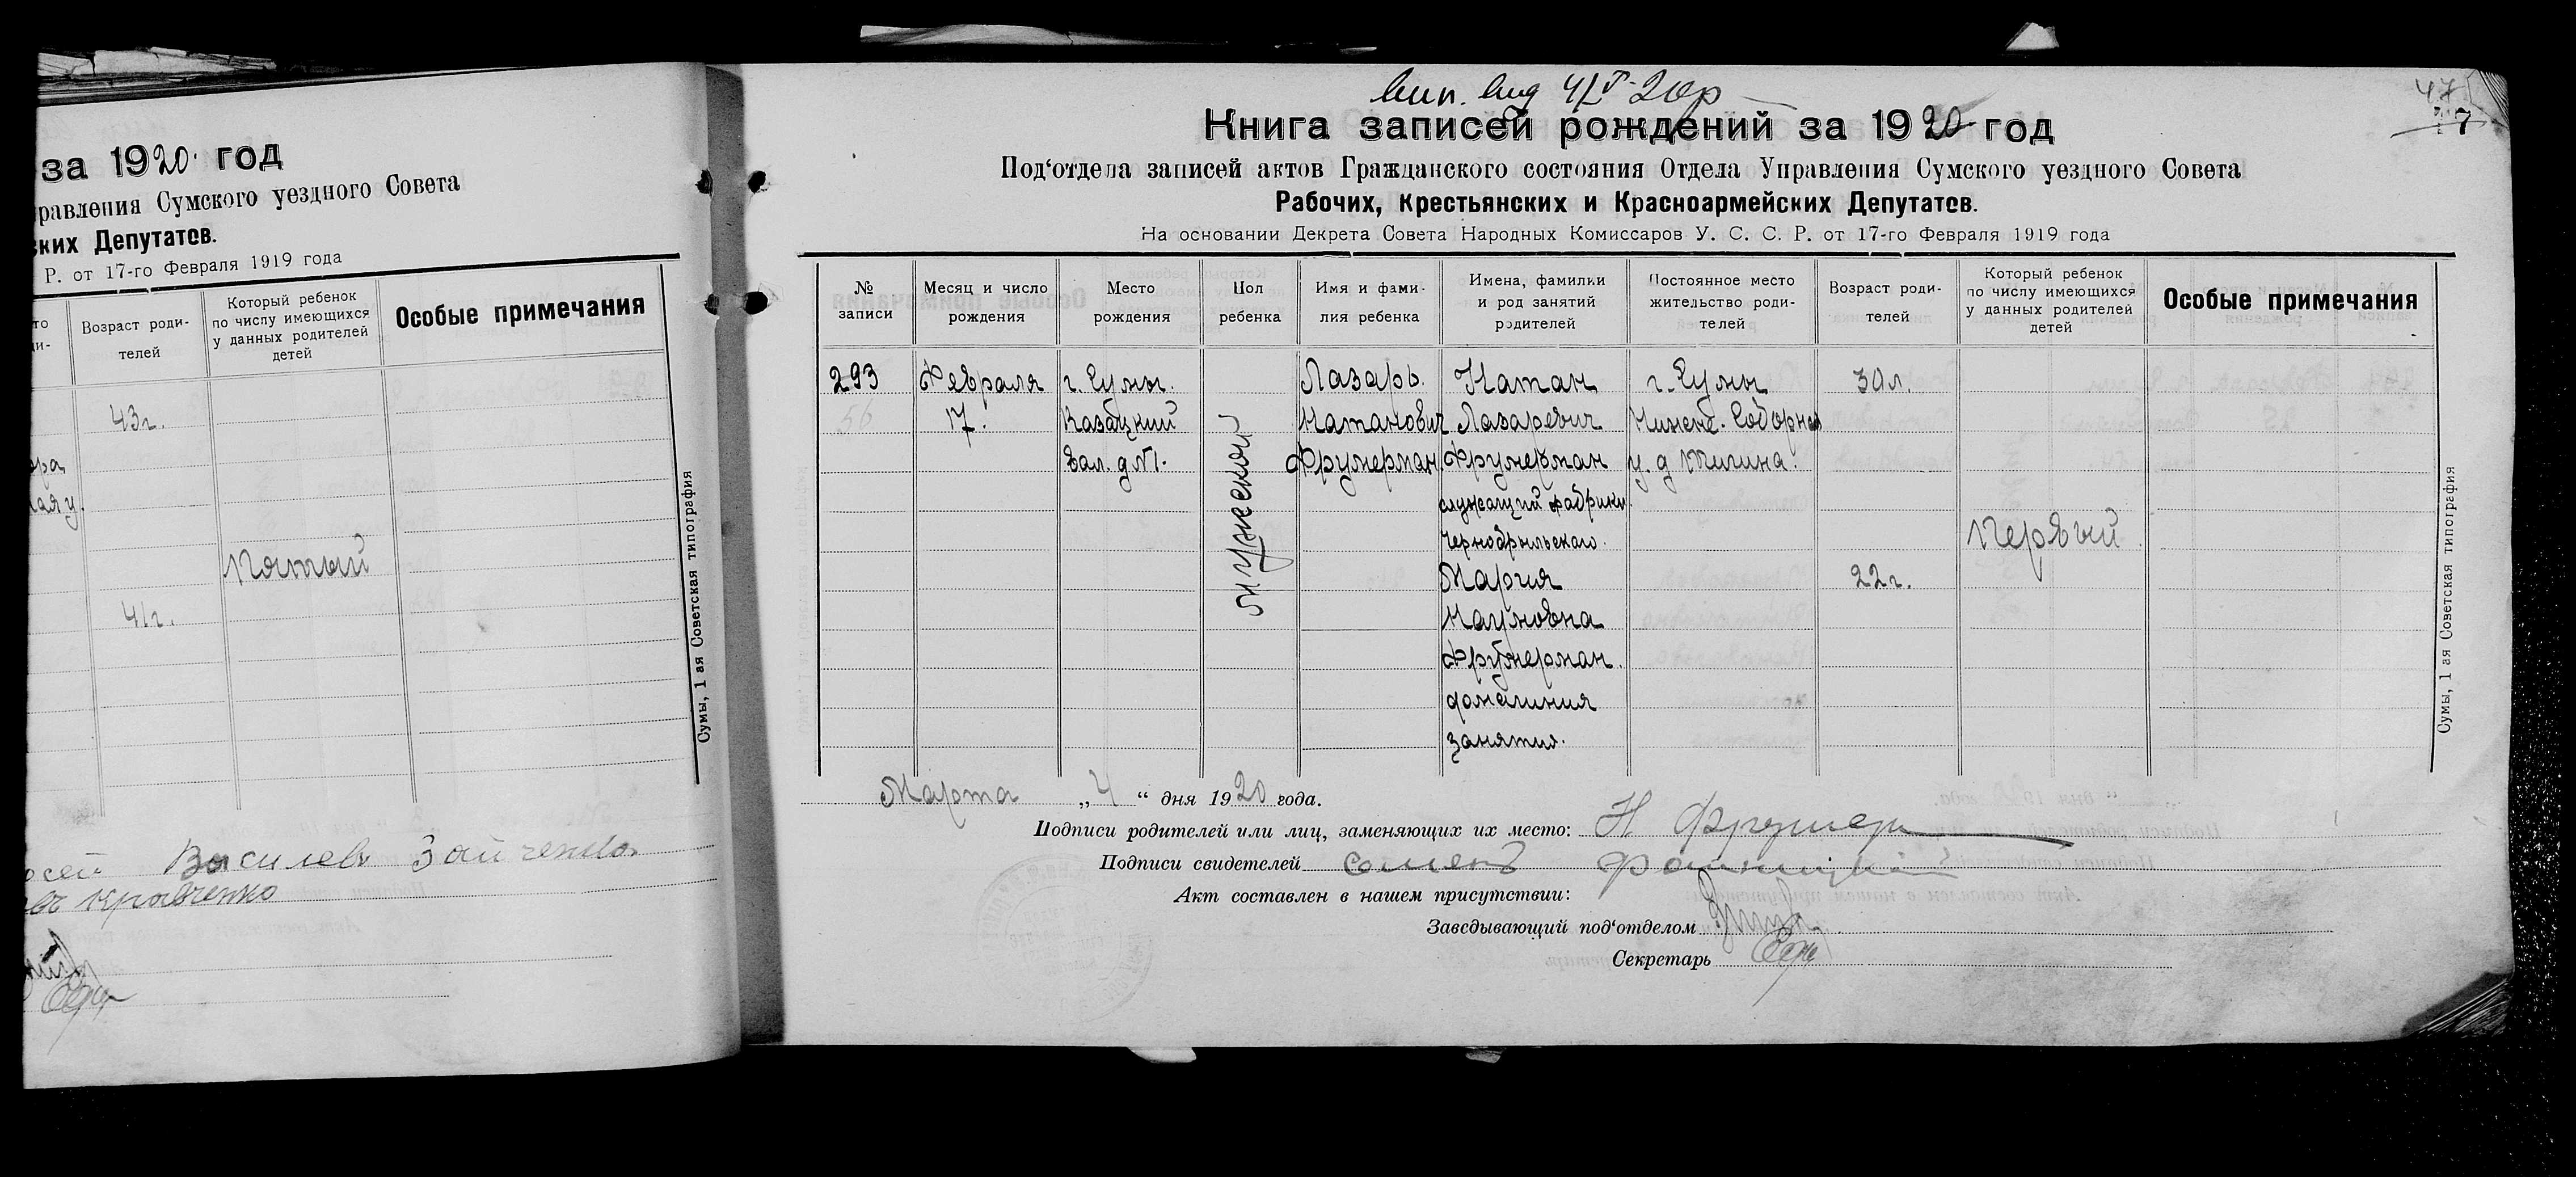 за 1920 год
правления Сумского уездного Совета
ских Депутатов.
Р. от 17-го Февраля 1919 года
Возраст роди-
телей
Который ребенок
по числу имеющихся
у данных родителей
детей
Особые примечания
43г.
Пятый
41г.
Василев Зайченко
Кравченко
Сумы, 1 ая Советская типография
47
Книга записей рождений за 1920 год
Под'отдела записей актов Гражданского состояния Отдела Управления Сумского уездного Совета
Рабочих, Крестьянских и Красноармейских Депутатов.
На основании Декрета Совета Народных Комиссаров У. С. С. Р. от 17-го Февраля 1919 года
№
записи
Месяц и число
рождения
Место
рождения
Пол
ребенка
Имя и фами-
лия ребенка
Имена, фамилии
и род занятий
родителей
Постоянное место
жительство роди-
телей
Возраст роди-
телей
Который ребенок
по числу имеющихся
у данных родителей
детей
Особые примечания
293
56
Февраля
17.
г. Сумы.
Казацкий
вал. д №1.
мужеской
Лазарь.
Натанович
Фрумерман.
Натан
Лазаревич
Фрумерман
служащий фабрики
Чернобрыльского.
Мария
Наумовна
Фрумерман.
домашния
занятия.
г. Сумы
Нижне. Соборная
у. д
30л.
22г.
Первый
Марта „4“ дня 1920 года.
Подписи родителей или лиц, заменяющих их место: Н Фрумер
Подписи свидетелей
Акт составлен в нашем присутствии:
Заведывающий под'отделом
Секретарь
Сумы, 1 ая Советская типография